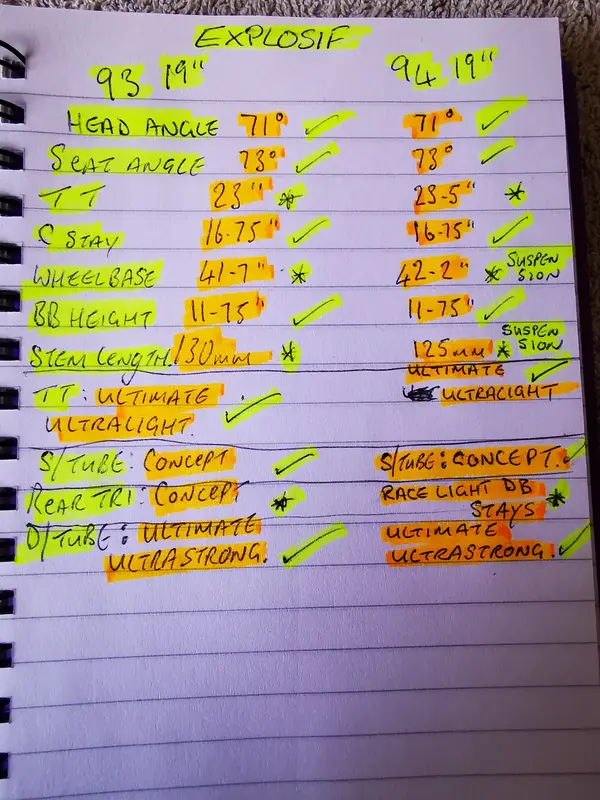 EXPLOSIF
93 19" 94 19"
HEAD ANGLE 71° ✓ 71° ✓
SEAT ANGLE 73° ✓ 73° ✓
TT 23" * 23-5" *
C STAY 16-75" ✓ 16-75" ✓
WHEELBASE 41-7" * 42-2" * SUSPEN
SION
BB HEIGHT 11-75" ✓ 11-75" ✓
STEM LENGTH. 130mm * 125mm * SUSPEN
SION
TT: ULTIMATE ULTIMATE ✓
ULTRALIGHT. ✓ ULTRALIGHT
S/TUBE: CONCEPT ✓ S/TUBE: CONCEPT. ✓
REAR TRI: CONCEPT * RACE LIGHT DB
STAYS *
D/TUBE: ULTIMATE ULTIMATE
ULTRASTRONG. ✓ ULTRASTRONG. ✓